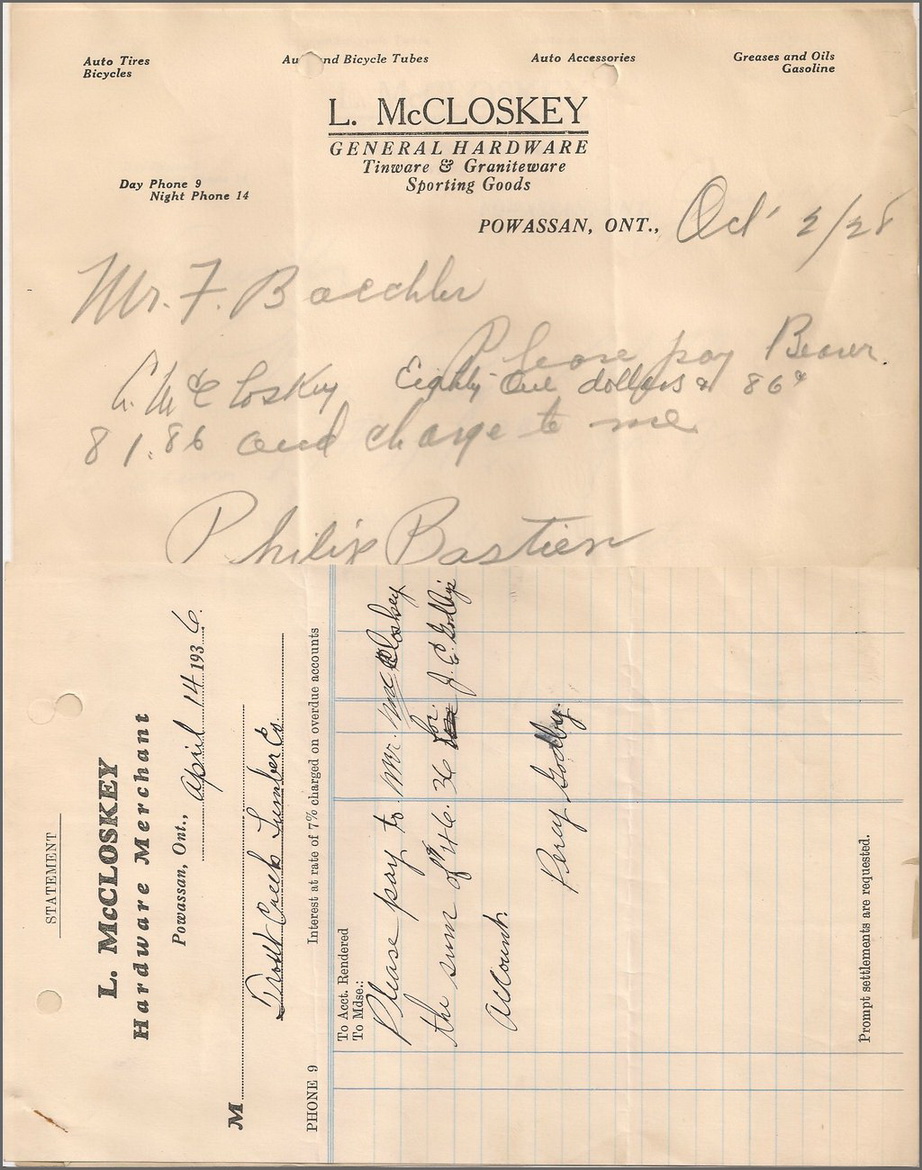 Auto Tires
Bicycles
Auto and Bicycle Tubes
Auto Accessories
Greases and Oils
Gasoline
L. McCLOSKEY
GENERAL HARDWARE
Tinware & Graniteware
Sporting Goods
Day Phone 9
Night Phone 14
POWASSAN, ONT., Oct 2/28
Mr. F. Baechler
Please pay Bearer
L. McCloskey Eighty One dollars & 86¢
81.86 and charge to me
Philip Bastien
STATEMENT
L. McCLOSKEY
Hardware Merchant
Powassan, Ont., April 14 1936.
M
Trout Creek Lumber Co.
PHONE 9 Interest at rate of 7% charged on overdue accounts
To Acct. Rendered
To Mdse.:
Please pay to Mr. McCloskey
the sum of 46.36 for J. E. Golby's
account.
Percy Godby.
Prompt settlements are requested.